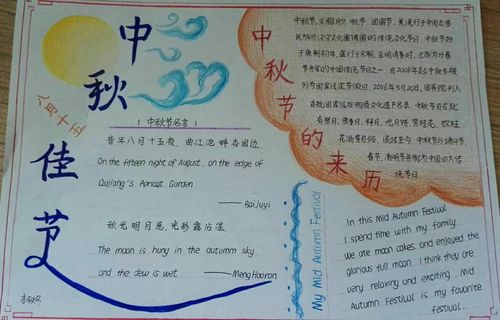 中秋佳节
八月十五
中秋节名言
昔年八月十五夜,曲江池畔杏园边
On the fifteen night of August, on the edge of
Qujiang's Apricot Garden
——Bai Juyi
秋光明月悬,光彩露沾湿
The moon is hung in the autumn sky
and the dew is wet ——Meng Haoran
中秋节的来历
中秋节,又称月夕、秋节、团圆节,是流行于中国众多
民族与汉字文化圈诸国的传统文化节日,中秋节始
于唐朝初年,盛行于宋朝,至明清时,已成为与春
节齐名的中国传统节日之一,自2008年起中秋节被
列为国家法定节假日,2006年5月20日,国务院列入
首批国家级非物质文化遗产名录。中秋节自古就
有祭月、赏月、拜月、吃月饼、赏桂花、饮桂
花酒等习俗,流传至今,中秋节与端午节
春节、清明节并称为中国四大传
统节日
My Mid Autumn Festival
In this Mid Autumn Festival
I spend time with my family.
We ate moon cakes and enjoyed the
glorious full moon. I think they are
very relaxing and exciting. Mid
Autumn Festival is my favorite
festival.